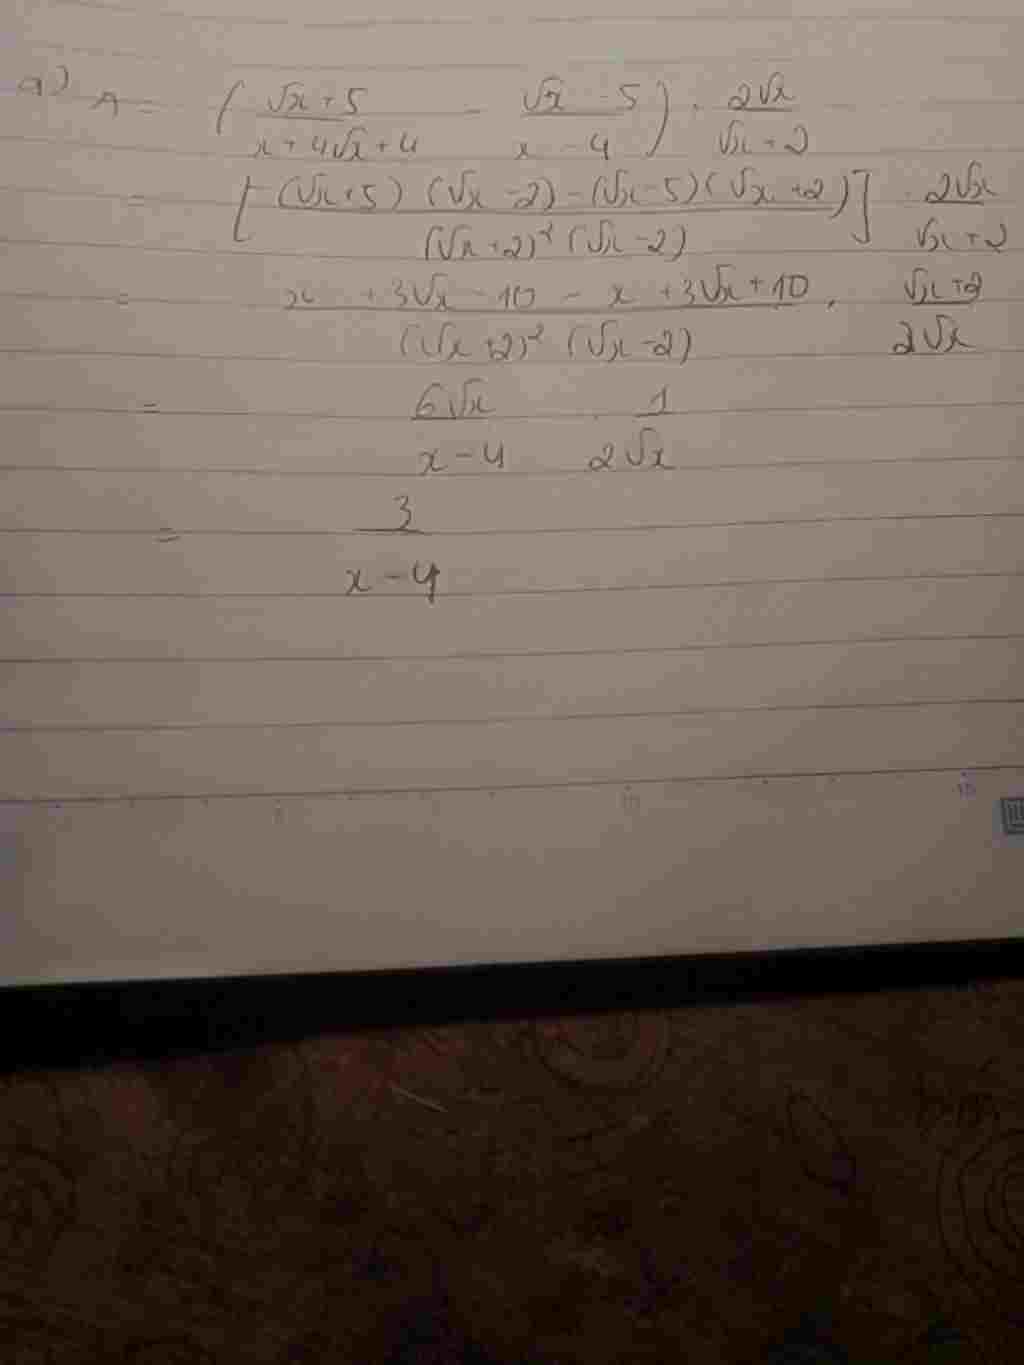 a) A = ( (√x + 5)/(x + 4√x + 4) - (√x - 5)/(x - 4) ) . 2√x/(√x + 2)
= [ ((√x + 5) (√x - 2) - (√x - 5) (√x + 2))/((√x + 2)² (√x - 2)) ] . 2√x/(√x + 2)
= (x + 3√x - 10 - x + 3√x + 10)/((√x + 2)² (√x - 2)) . (√x + 2)/(2√x)
= 6√x/(x - 4) . 1/(2√x)
= 3/(x - 4)